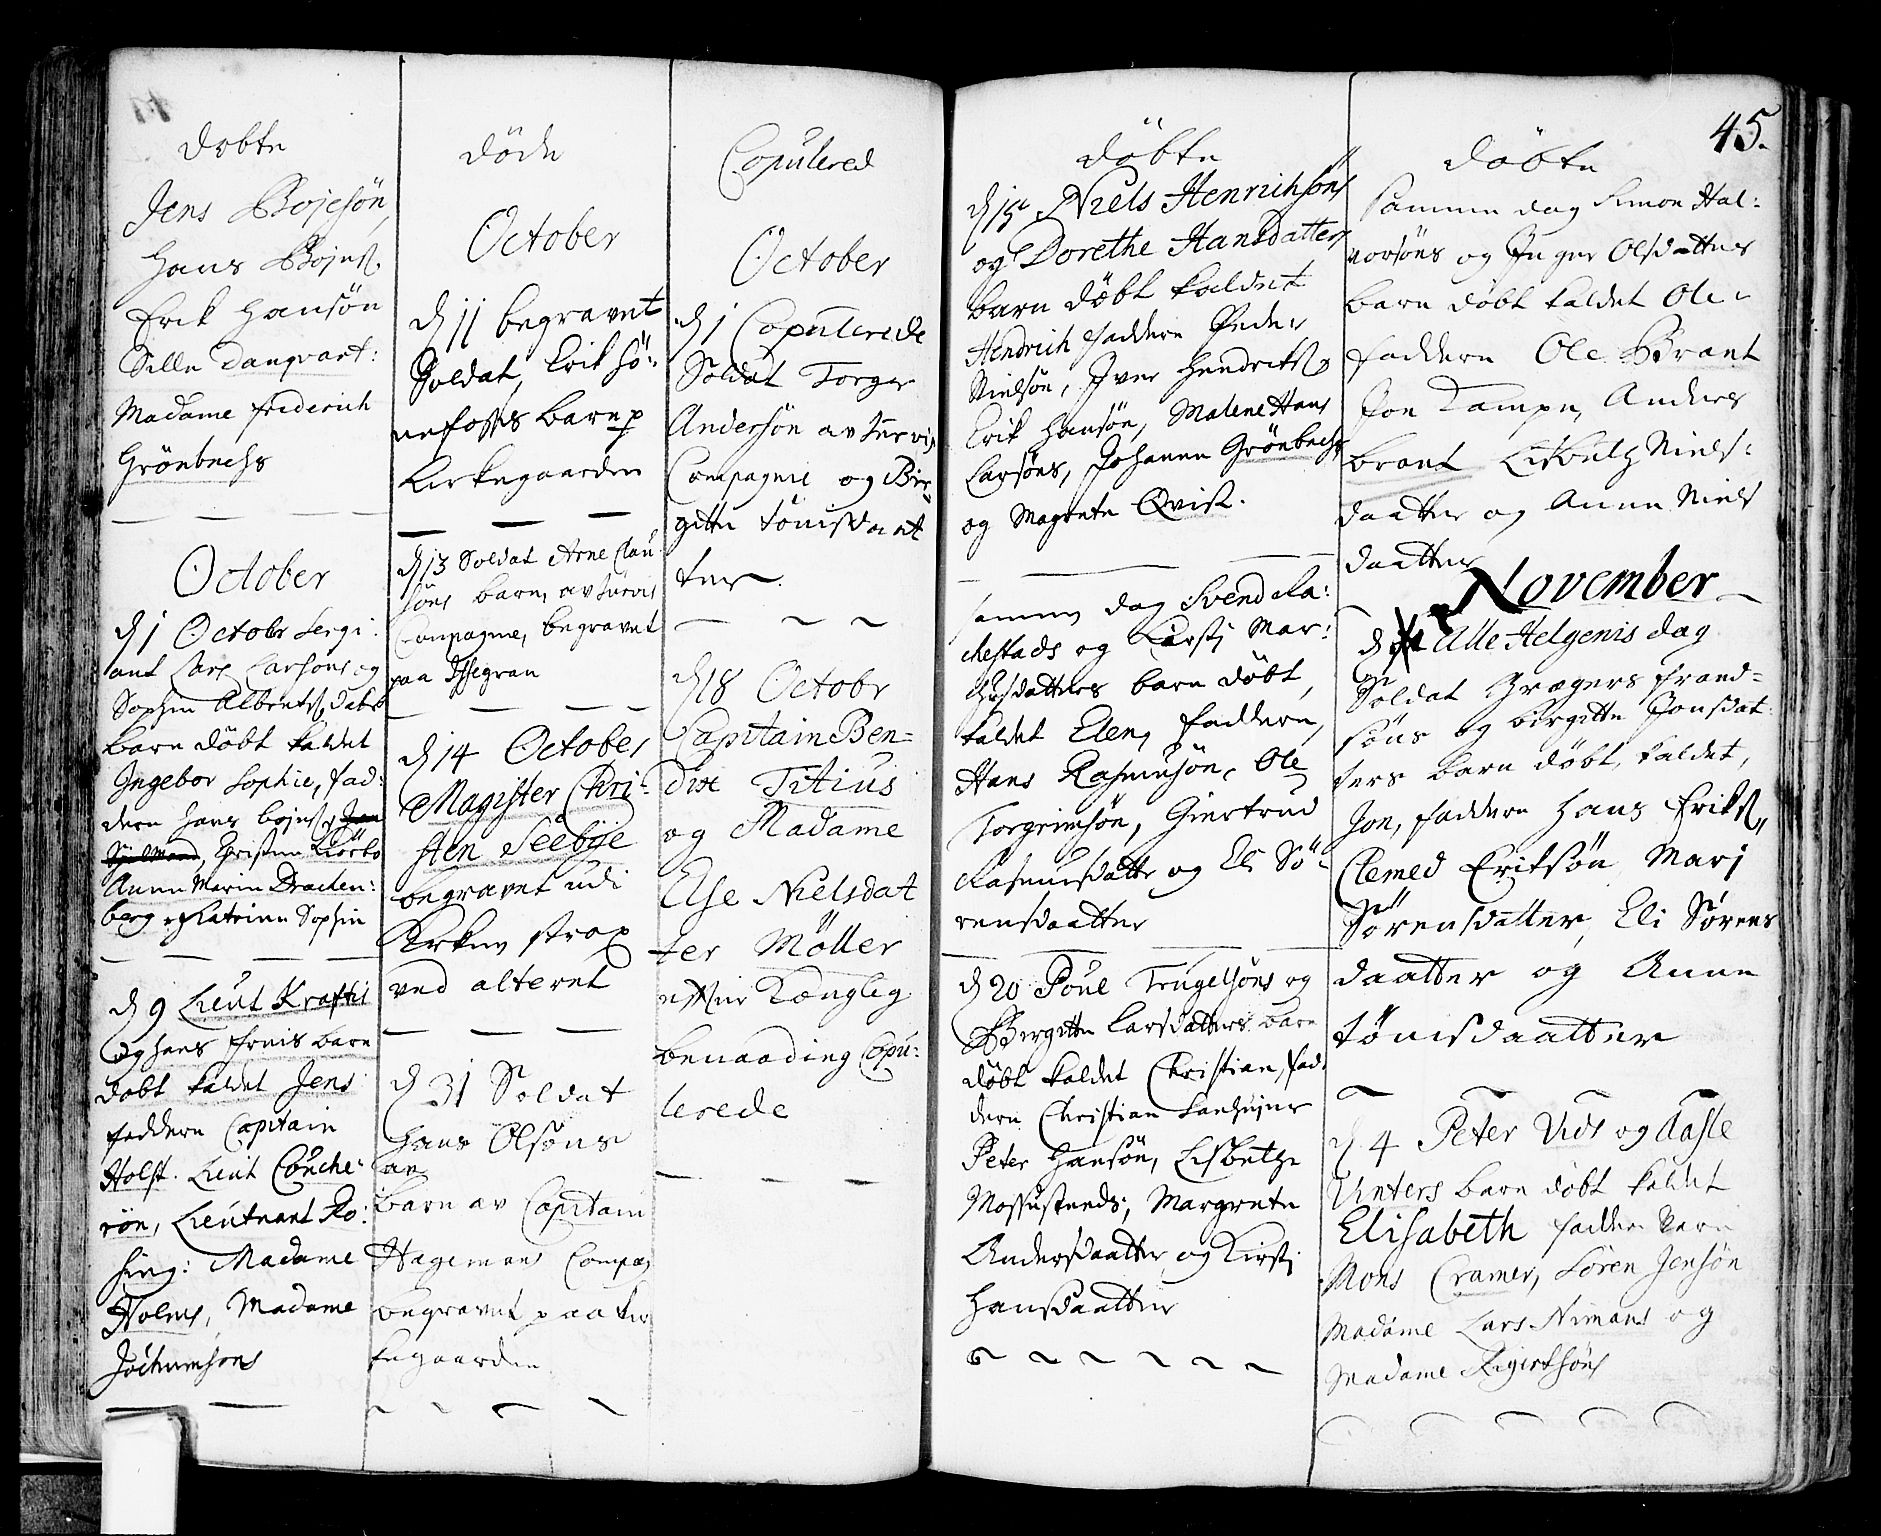 døbte
Jens Bojesön,
Hans Bojes.
Erik Hansön
Sille Danqvart:
Madame Friderich
Grönbechs
October
d 1 Octobr Sergi:
ant Lars Larsöns og
Sophie Albertsdatr
barn döbt kaldet
Ingebor Sophie, fad:
dern Hans Bojes,
Christen
Anne Marin Drachen:
berg og Katrine Sophie
d 9 Lieut Krafts
og hans Frues barn
døbt kaldet Jens
faddern Capitain
Holst. Lieut Couche:
rön, Lieutnant Ro:
sing: Madame
Holms, Madame
Jochumsons
döde
October
d 11 begravet
Soldat Erik Hö:
nefosses barn p
Kirkegaarden
d 13 Soldat Arne Clau
söns barn, av Jurvis
Compagnie, begravet
paa Issegran
d 14 October
Magister Chri:
sten Seebye
begravet udi
Kirken strax
ved alteret
d 31 Soldat
Hans Olsöns
barn av Capitain
Hagemans Compag
begravet paa Kir
kegaarden
Copulered
October
d 1 Copulerede
Soldat Torger
Andersön av Jurvis
Compagnie og Bir=
gitte Tönisdaat
ter.
d 18 Octobr
Capitain Ben=
dix Titius
og Madame
Else Nielsdat
ter Möller
efter Konglig
benaading Copu:
lerede
45.
döbte
d 15 Niels Henrichsöns
og Dorethe Hansdatters
barn döbt kaldet
Hendrich faddern Peder
Nielsön, Iver Hendriks
Erik Hansön, Malene Hans
Larsöns, Johanne Grönbechs
og Magrete Qvist.
samme dag Svend Ra:
kestads og Kirsti Mar:
thisdatters barn döbt,
kaldet Elen, faddern,
Hans Rasmusön, Ole
Torgrimsön, Giertrud
Rasmusdatter og Eli Sö:
rensdaatter
d 20 Poul Trugelsöns og
Bergitte Larsdatters barn
döbt kaldet Christian, fad:
dern Christian
Peter Hansön, Lisbethe
Mossusteeds, Margrete
Andersdaatter og Kirsti
Hansdaatter
döbte
samme dag Simon Hal:
vorsöns og Inger Olsdatters
barn döbt kaldet Ole
faddern Ole Brant
Jon Kampen, Anders
brant Lisbeth Niels:
daatter og Anne Niels
daatter
November
d 1 Alle Helgenis dag
Soldat Gregers Frand=
söns og birgitte Jonsdat:
ters barn döbt, kaldet,
Jon, faddern Hans Eriks,
Clemed Eriksön Mari
Sörensdatter, Eli Sørens
daatter og Anne
Tønisdaatter
d 4 Peter Vids og Aasle
Vinters barn döbt kaldet
Elisabeth faddern Karn
Mons Cramer, Sören Jensön
Madame Lars Nimans og
Madame Rigertsöns